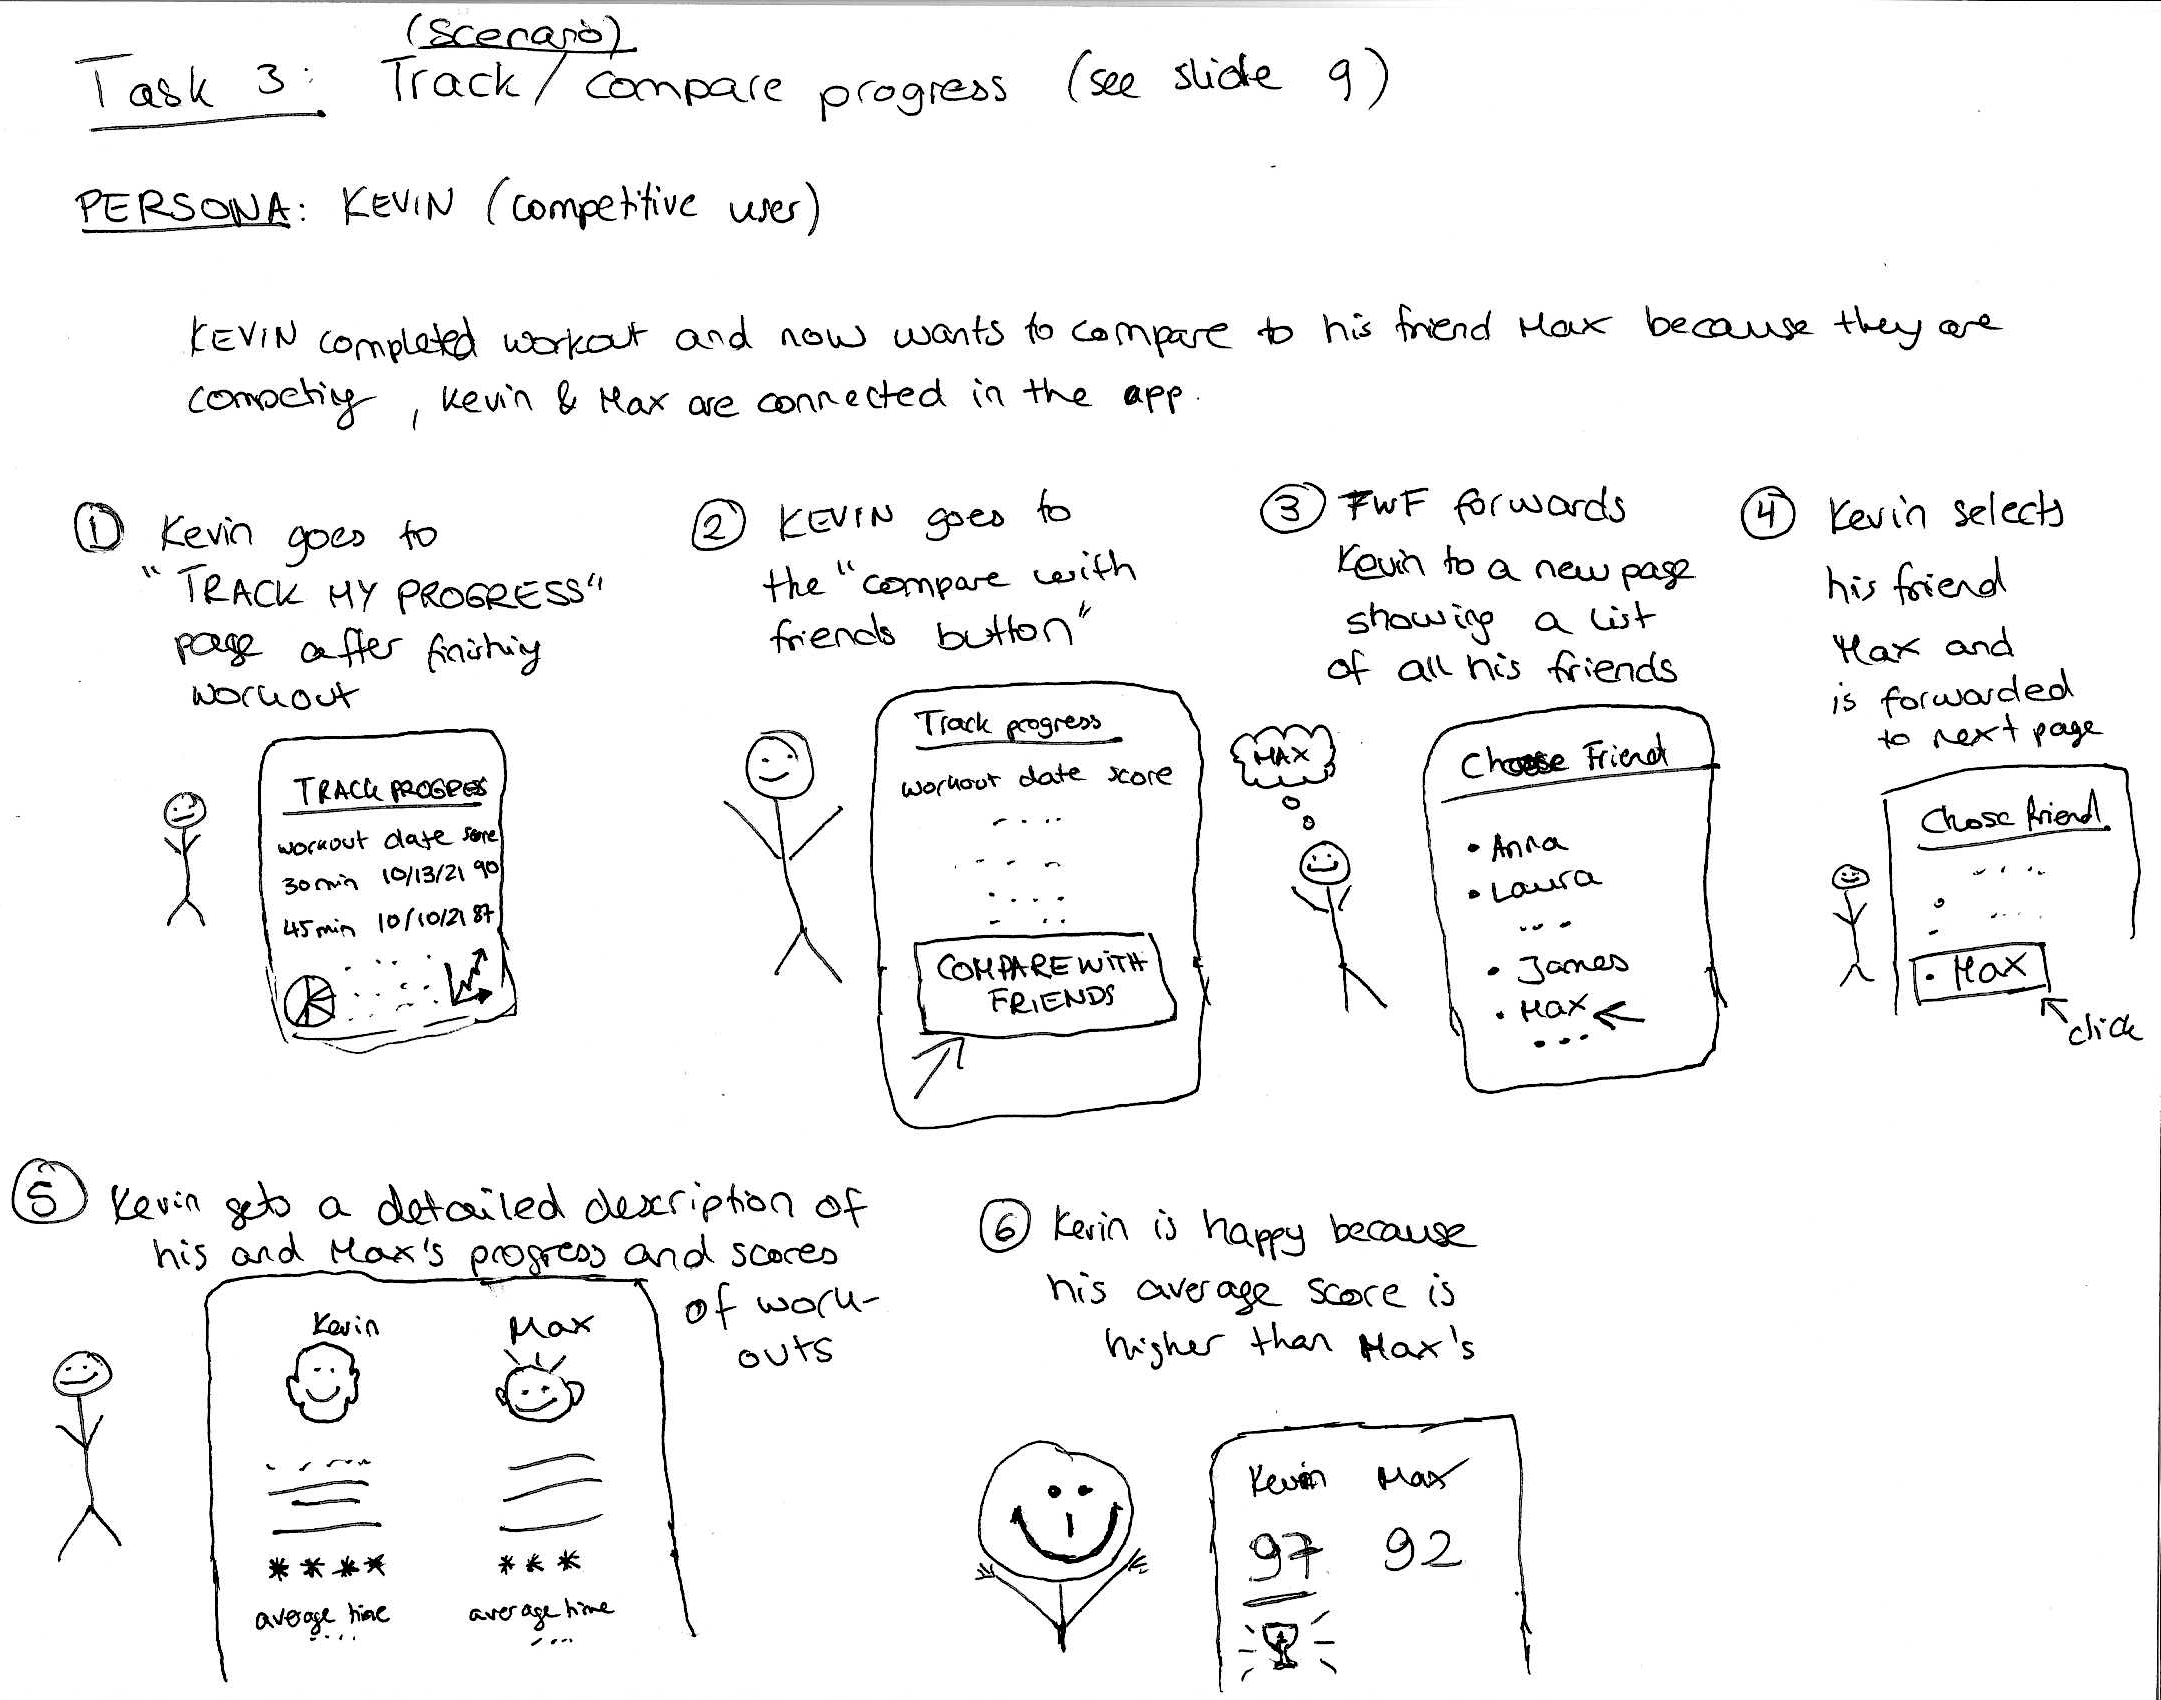 (scenario)
Task 3: Track / compare progress (see slide 9)
PERSONA: KEVIN (competitive user)
KEVIN completed workout and now wants to compare to his friend Max because they are
competing, Kevin & Max are connected in the app.
① Kevin goes to
"TRACK MY PROGRESS"
page after finishing
workout
TRACK PROGRES
workout date score
30 min 10/13/21 90
45 min 10/10/21 87
② KEVIN goes to
the "compare with
friends button"
Track progress
workout date score
COMPARE WITH
FRIENDS
③ FWF forwards
Kevin to a new page
showing a list
of all his friends
MAX
Choose Friend
• Anna
• Laura
...
• James
• Max
...
④ Kevin selects
his friend
Max and
is forwarded
to next page
Chose friend
• Max
click
⑤ Kevin gets a detailed description of
his and Max's progress and scores
of work-
outs
Kevin Max
**** ***
average time average time
⑥ Kevin is happy because
his average score is
higher than Max's
Kevin Max
97 92